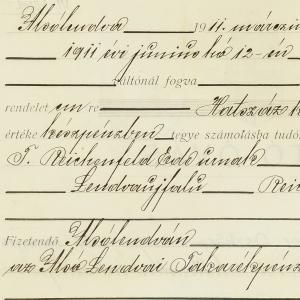 Alsólendva 1911. március
1911 évi junius hó 12-én
váltónál fogva
rendelet em re Hatszáz k
értéke készpénzben tegye számolásba tudó
T. Reichenfeld Ede urnak
Lendvaujfalu Reic
Fizetendő Alsólendván
az Alsó Lendvai Takarékpénz